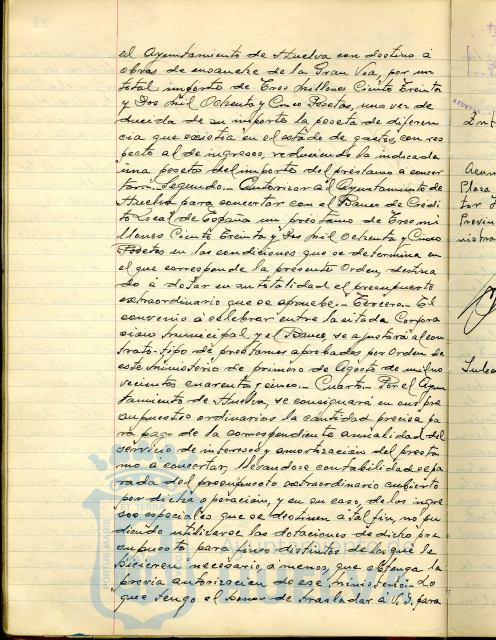 el Ayuntamiento de Huelva con destino á
obras de ensanche de la Gran Vía, por un
total importe de Tres Millones Ciento Treinta
y Dos Mil Ochenta y Cinco Pesetas, una vez de
ducida de su importe la peseta de diferen
cia que existia en el estado de gastos, con res
pecto al de ingresos, reduciendo la indicada
una peseta del importe del prestamo a concer
tar.- Segundo.- Autorizar al Ayuntamiento de
Huelva para concertar con el Banco de Crédi
to Local de España un préstamo de Tres mi
llones Ciento Treinta y Dos mil Ochenta y Cinco
Pesetas en las condiciones que se determina en
el que corresponde la presente Orden, destina
do á dotar en su totalidad el presupuesto
extraordinario que se aprueba.- Tercero.- El
convenio á celebrar entre la citada Corpora
cion Municipal y el Banco, se ajustará al con
trato-tipo de prestamos aprobados por Orden de
este Ministerio de primero de Agosto de mil no
vecientos cuarenta y cinco.- Cuarto.- Por el Ayun
tamiento de Huelva, se consignará en sus pre
supuestos ordinarios la cantidad precisa pa
ra pago de la correspondiente anualidad del
servicio de intereses y amortizacion del presta
mo á concertar, llevandose contabilidad sepa
rada del presupuesto extraordinario cubierto
por dicha operacion, y en su caso, de los ingre
sos especiales que se destinen a tal fin, no pu
diendo utilizarse las dotaciones de dicho pre
supuesto para fines distintos de los que le
hicieren necesario, a menos, que obtenga la
previa autorizacion de ese Ministerio.- Lo
que tengo el honor de trasladar á V. I. para
Acun
Plaza
tor
Provin
nistra
PORTUS MARIS
ET TERRA
Ayuntamiento